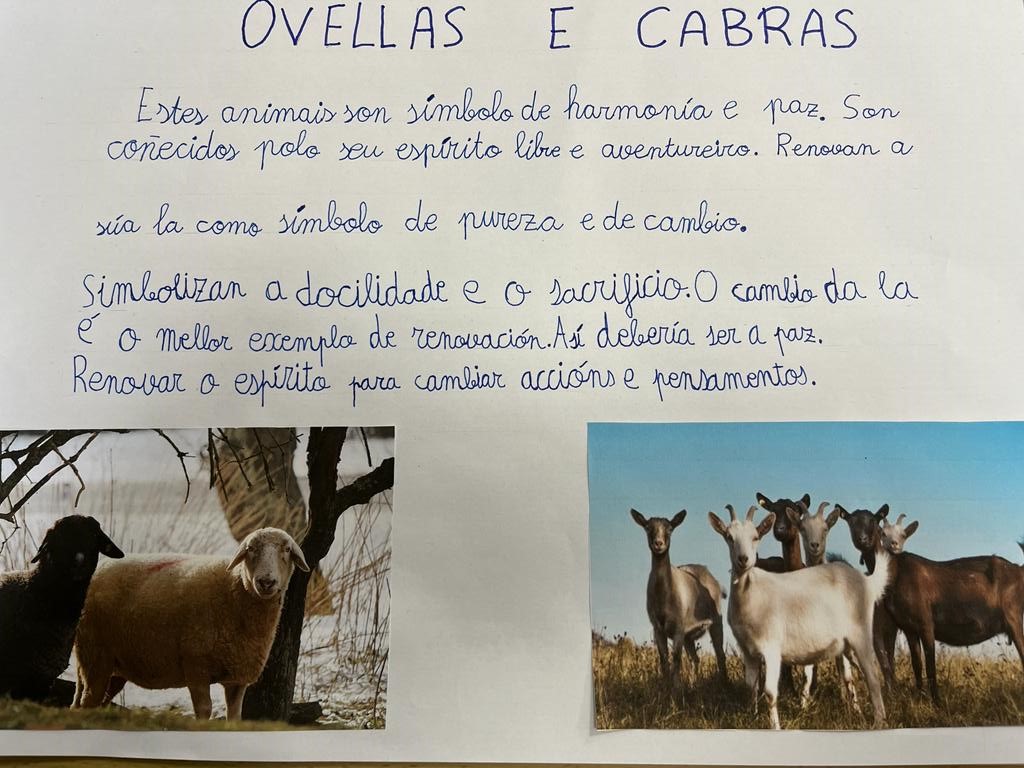 OVELLAS E CABRAS
Estes animais son símbolo de harmonía e paz. Son
coñecidos polo seu espírito libre e aventureiro. Renovan a
súa la como símbolo de pureza e de cambio.
Simbolizan a docilidade e o sacrificio. O cambio da la
é o mellor exemplo de renovación. Así debería ser a paz.
Renovar o espírito para cambiar accións e pensamentos.